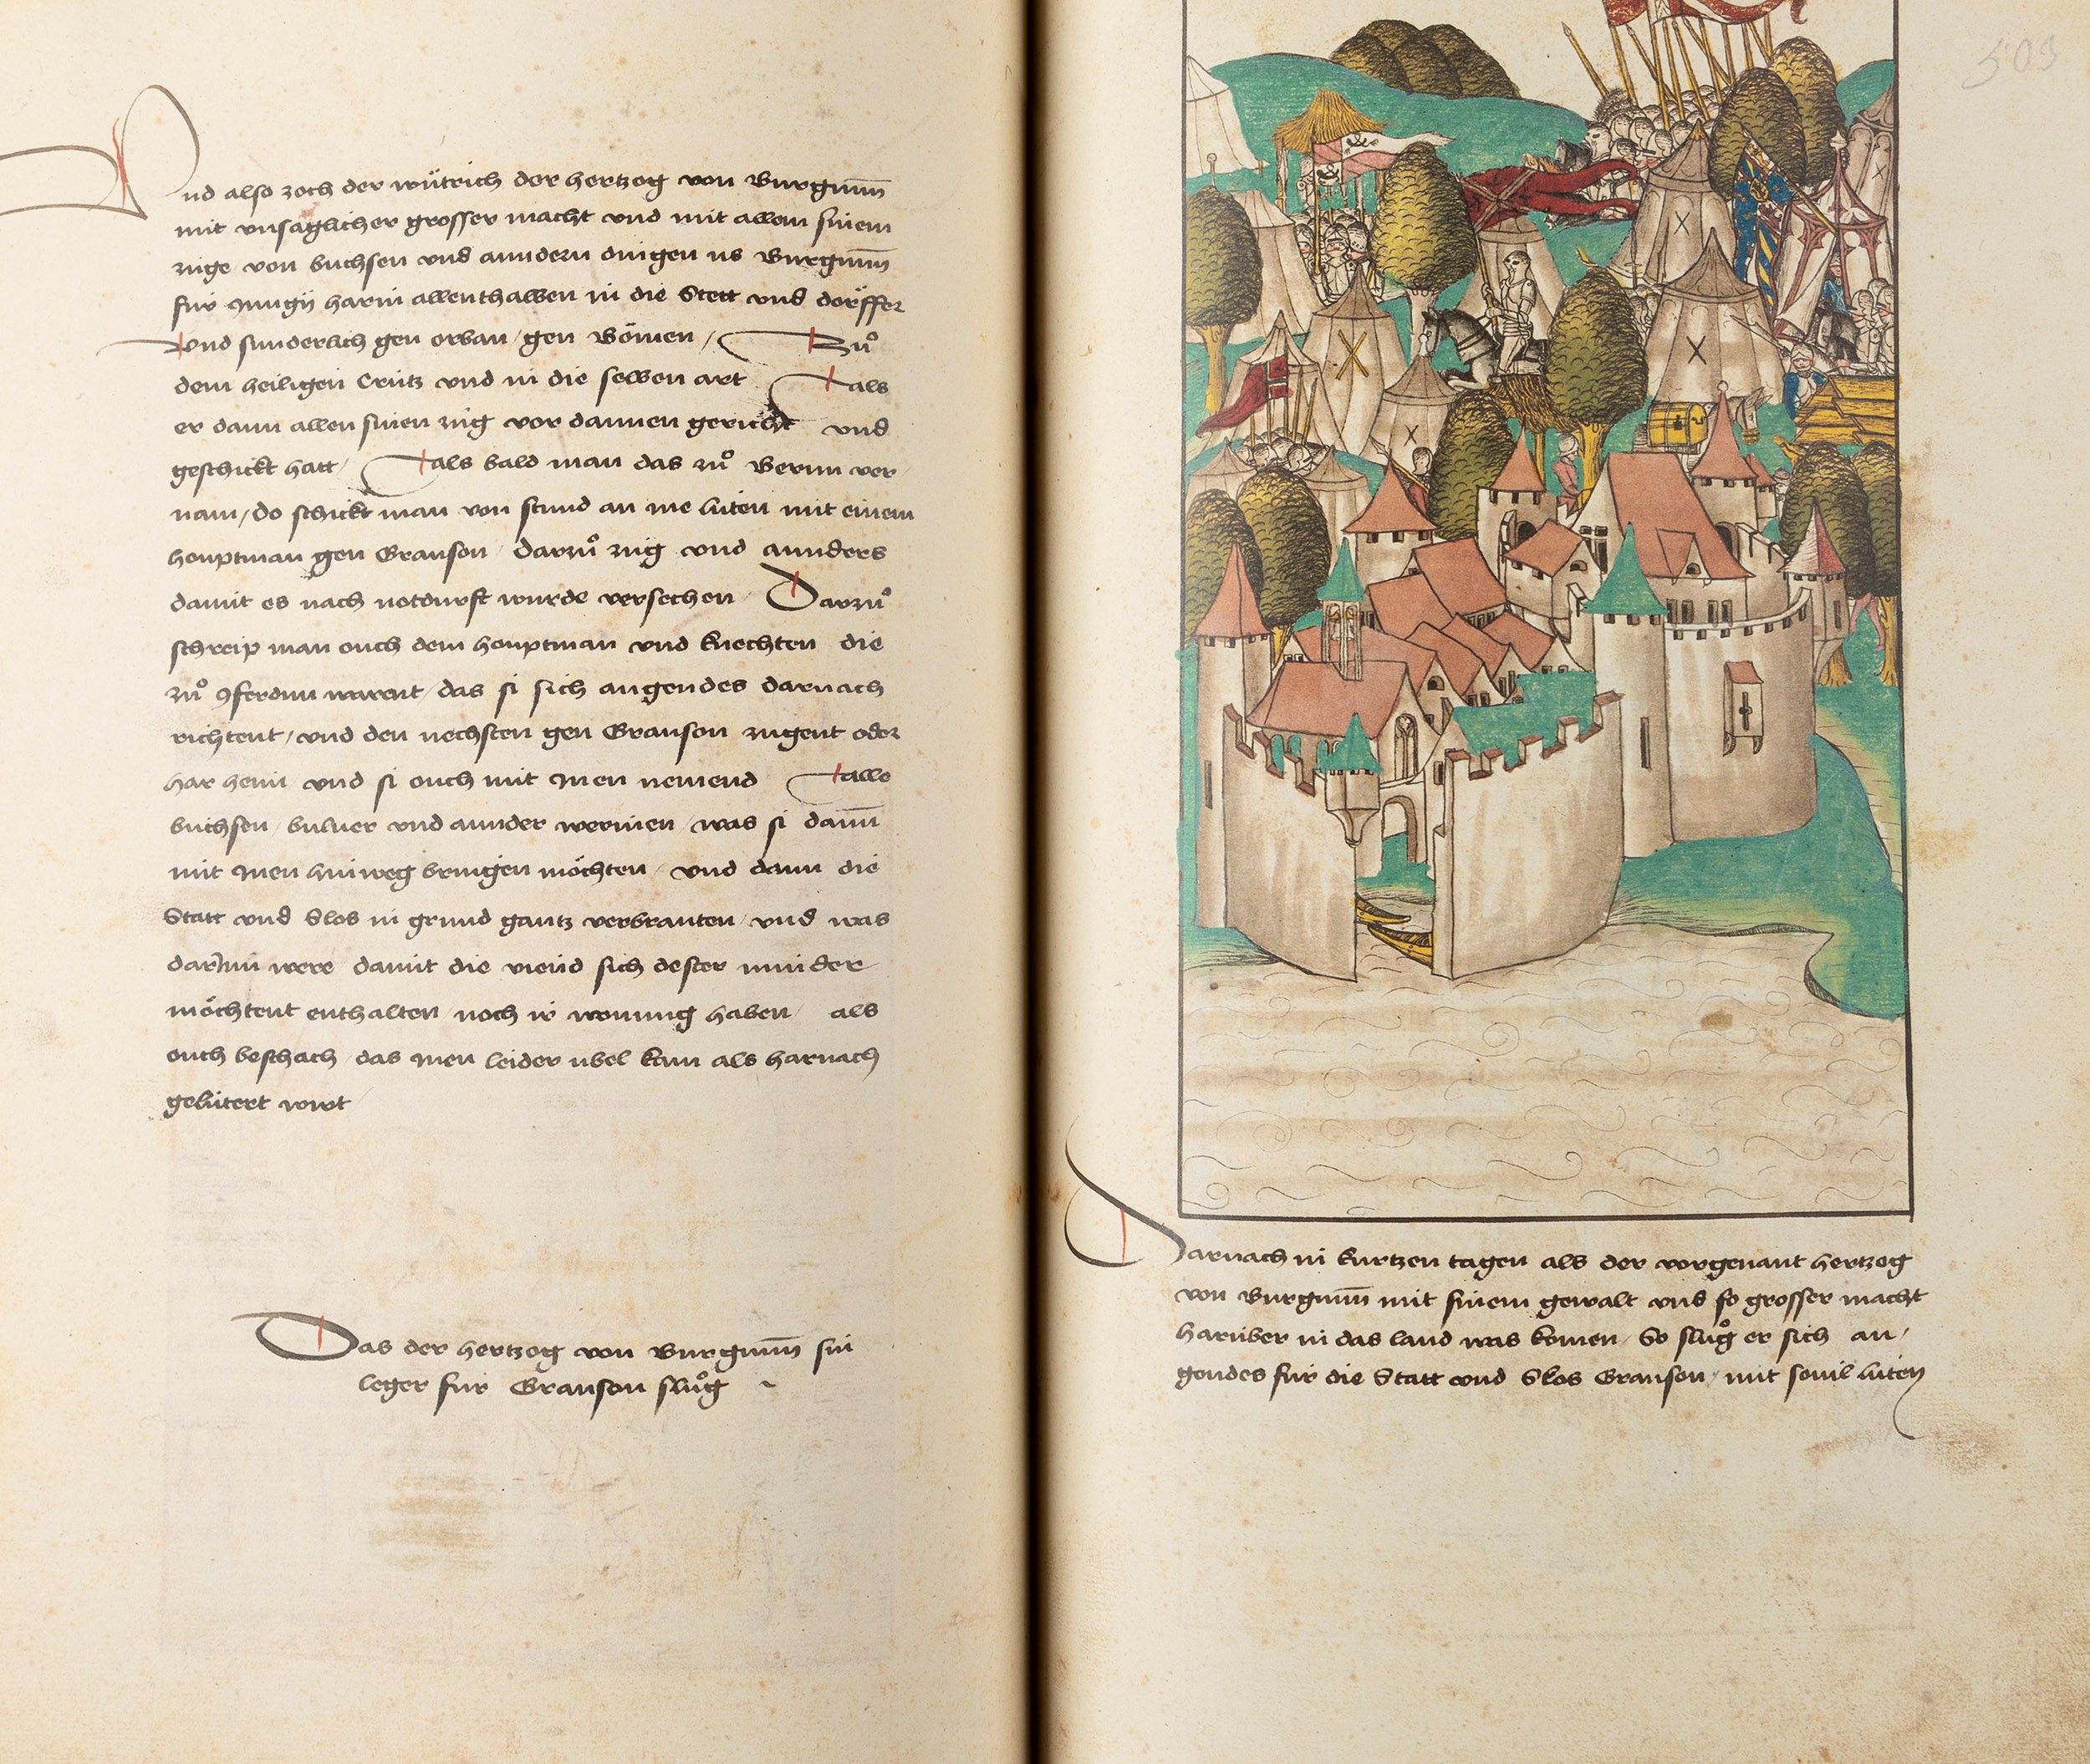 Und also zoch der wütrich der hertzog von Burgunn̄
mit unsaglicher grosser macht vnd mit allem sinem
zuge von buchsen vnd anndern dingen us Burgunn̄
für Jungy harin allenthalben in die Stett vnd dörffer
vnd sunderlich gen orban / gen Bömen / Zuͦ
dem heiligen Crütz vnd in die selben art als
er dann allen sinen züg vor dannen gericht vnd
geschickt hatt / als bald man das zuͦ Bernn ver
nam / do schickt man von stund an me lüten mit einem
houptman gen Granson / darzuͦ züg vnd annders
damit es nach notdurft wurde versechen / Darzuͦ
schreip man ouch dem houptman vnd knechten die
zuͦ yferdnn warent / das si sich angendes darnach
richtent / vnd den nechsten gen Granson zugent oder
har heim vnd si ouch mit Jnen nemend alle
buchsen / bulver vnd annder werinen / was si dann̄
mit Jnen hinweg bringen möchten / vnd dann die
Statt vnd Slos in grund gantz verbranten / vnd was
darJnn were damit die viend sich dester minder
möchtent enthalten noch ir wonung haben / als
ouch beschach / das Jnen leider übel kam als harnach
gelütert wirt /
Das der hertzog von Burgunn̄ sin
leger für Granson sluͦg ~
503
Darnach in kurtzen tagen als der vorgenant hertzog
von Burgunn̄ mit sinem gewalt vnd so grosser macht
harüber in das land was komen / So sluͦg er sich an /
gendes für die Statt vnd Slos Granson / mit sovil lüten